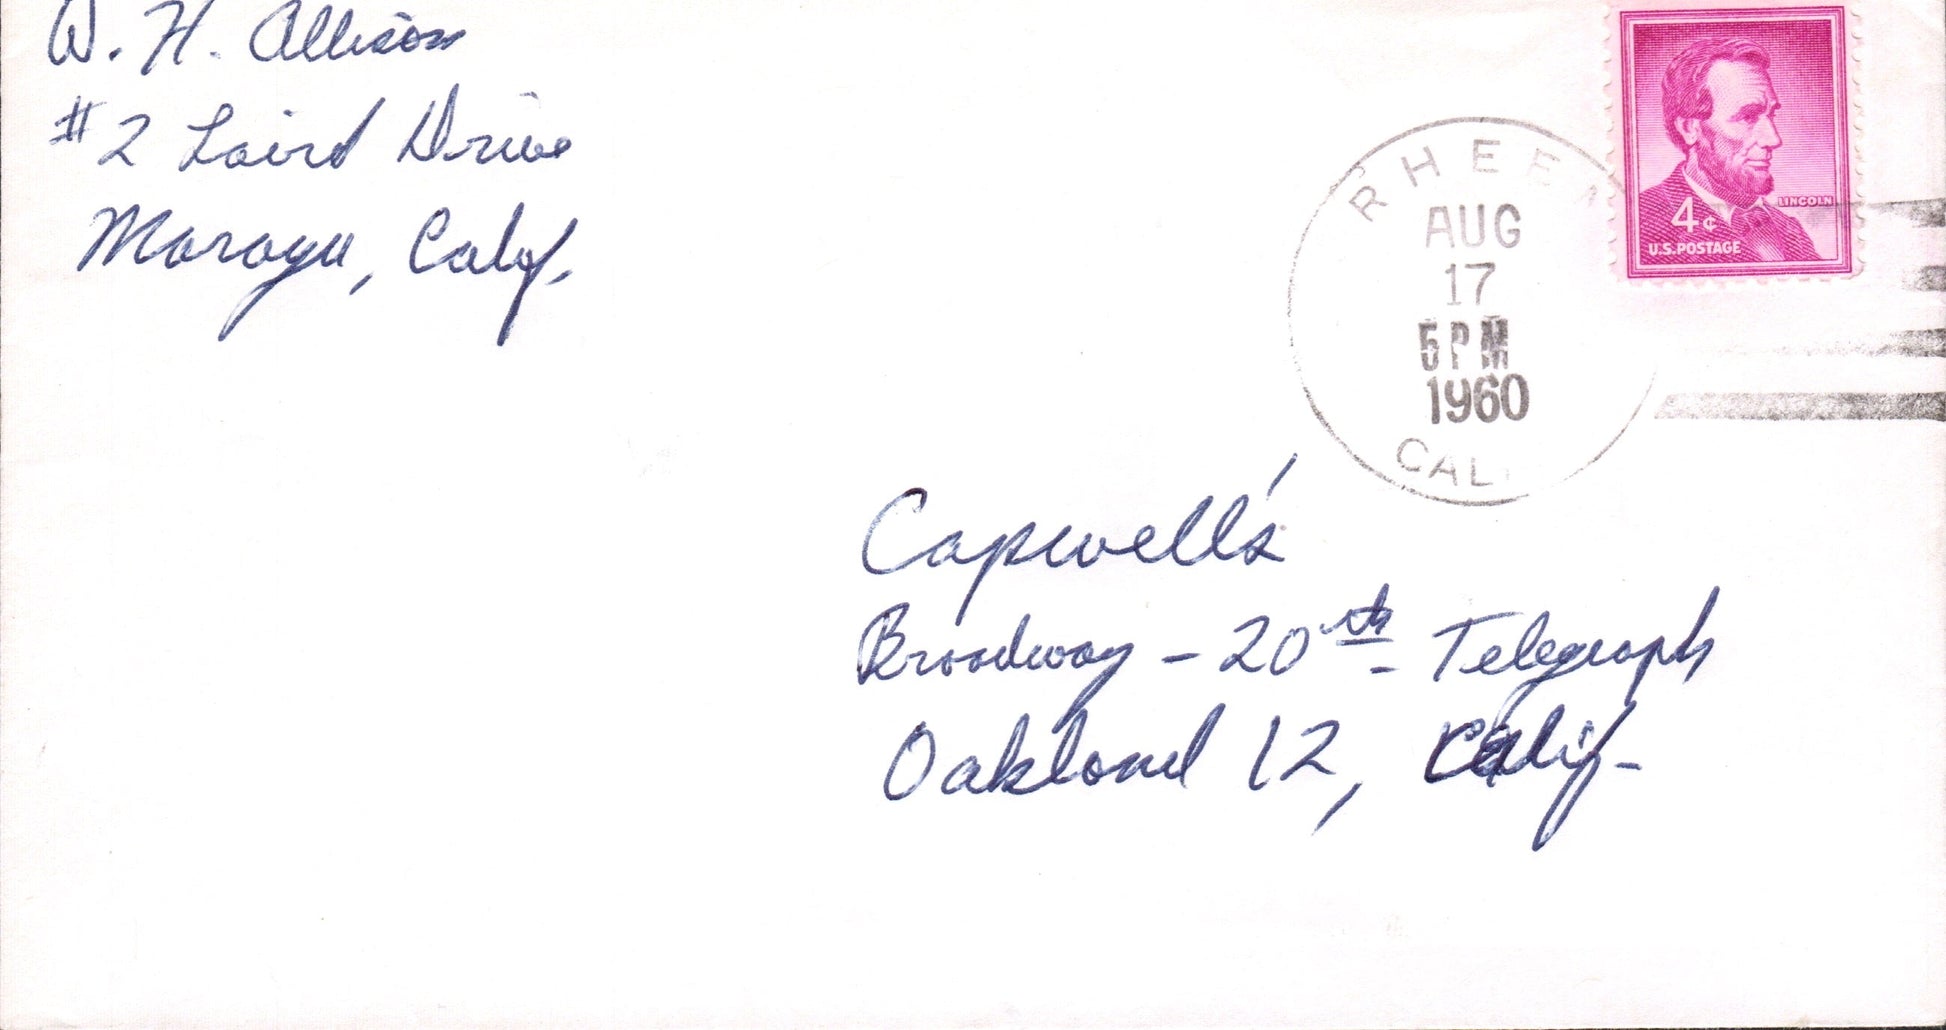 W. H. Allison
#2 Laird Drive
Moraga, Calif.
RHEEM
AUG
17
5 PM
1960
CALIF
LINCOLN
4¢
U.S. POSTAGE
Capwell's
Broadway - 20th - Telegraph
Oakland 12, Calif-